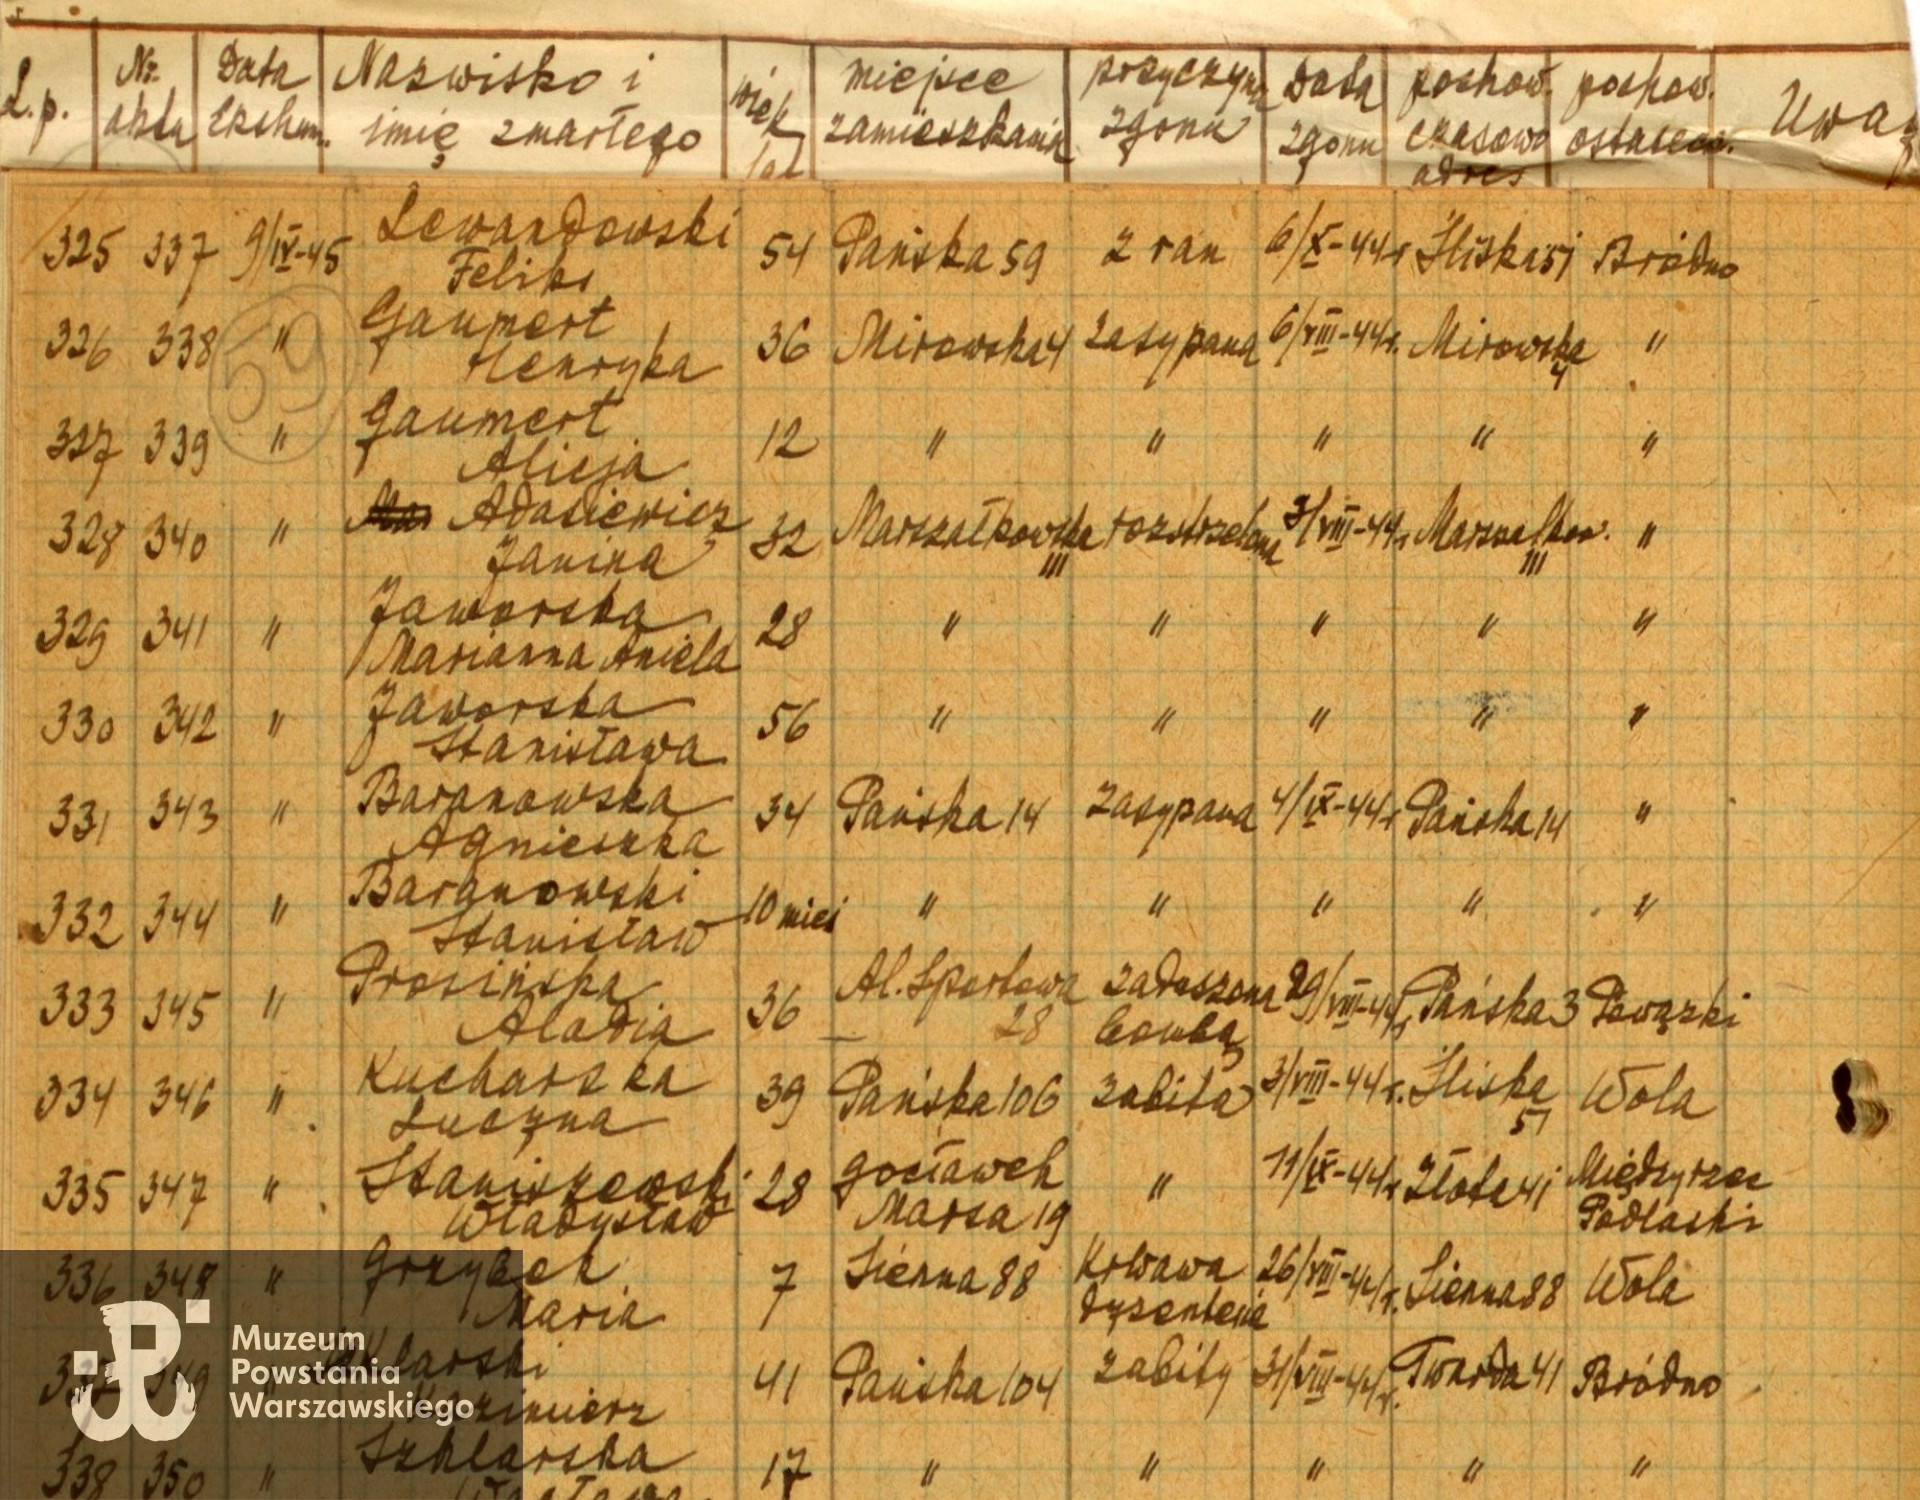 L.p. Nr. aktu Data Ekshum. Nazwisko i imię zmarłego wiek lat miejsce zamieszkania przyczyna zgonu Data zgonu pochow. czasowo adres pochow. ostatecz. Uwag
325 337 9/IV-45 Lewandowski Feliks 54 Pańska 59 z ran 6/X-44r Śliska 51 Bródno
326 338 " Gaumert Henryka 36 Mirowska 4 zasypana 6/VIII-44r. Mirowska 4 "
59
327 339 " Gaumert Alicja 12 " " " " "
328 340 " Adasiewicz Janina 32 Marszałkowska 111 rozstrzelana 3/VIII-44r. Marszałkow. 111 "
329 341 " Jaworska Marianna Aniela 28 " " " " "
330 342 " Jaworska Stanisława 56 " " " " "
331 343 " Baranowska Agnieszka 34 Pańska 14 zasypana 4/IX-44r Pańska 14 "
332 344 " Baranowski Stanisław 10 mies " " " " "
333 345 " Prosińska 36 Al. Sportowa 28 zaduszona bombą 29/VIII-44r Pańska 3 Powązki
334 346 " Kucharska Luczyna 39 Pańska 106 zabita 3/VIII-44r. Śliska 51 Wola
335 347 " Staniszewski Władysław 28 Gocławek Marsa 19 " 11/IX-44r Złota 41 Międzyrzec Podlaski
336 348 " Grzybek Maria 7 Sienna 88 Krwawa dyzenteria 26/VIII-44r. Sienna 88 Wola
337 349 " Kazimierz 41 Pańska 104 zabity 31/VIII-44r. Twarda 41 Bródno
338 350 " Szklarska 17 " " " " "
Muzeum
Powstania
Warszawskiego